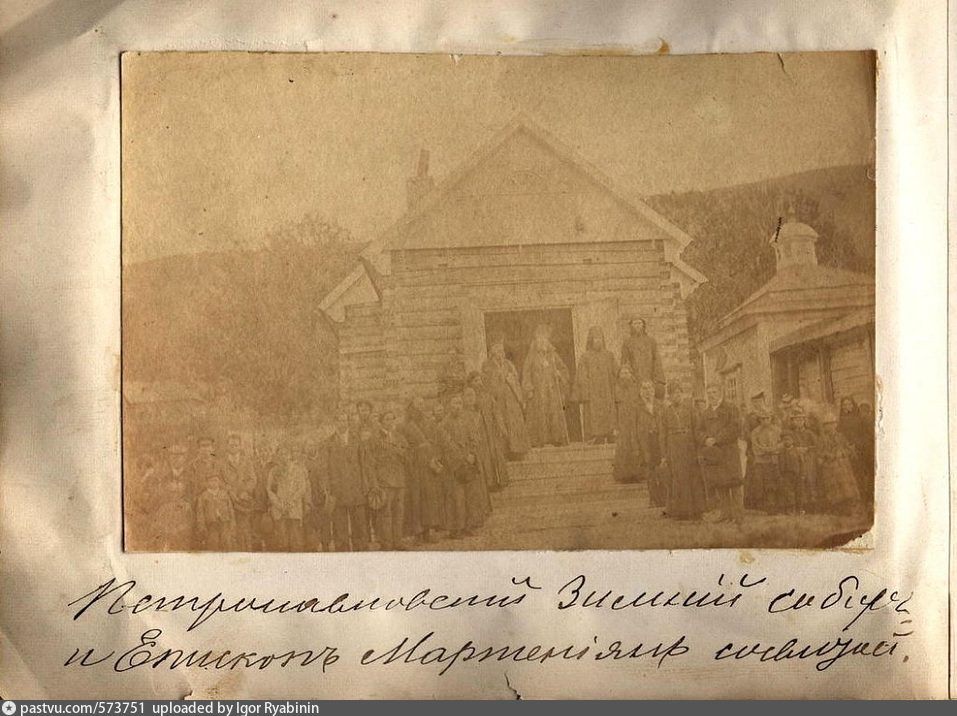 Петропавловскій Зимній соборъ
и Епископъ Мартеніянъ со свитой.
pastvu.com/573751 uploaded by Igor Ryabinin